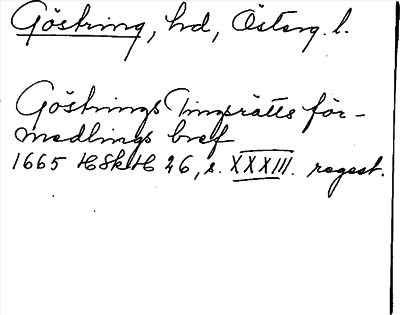 Göstring, hd, Österg. l.
Göstrings Tingsrätts för-
medlings bref
1665 HSkH 26, s. XXXIII. regest.